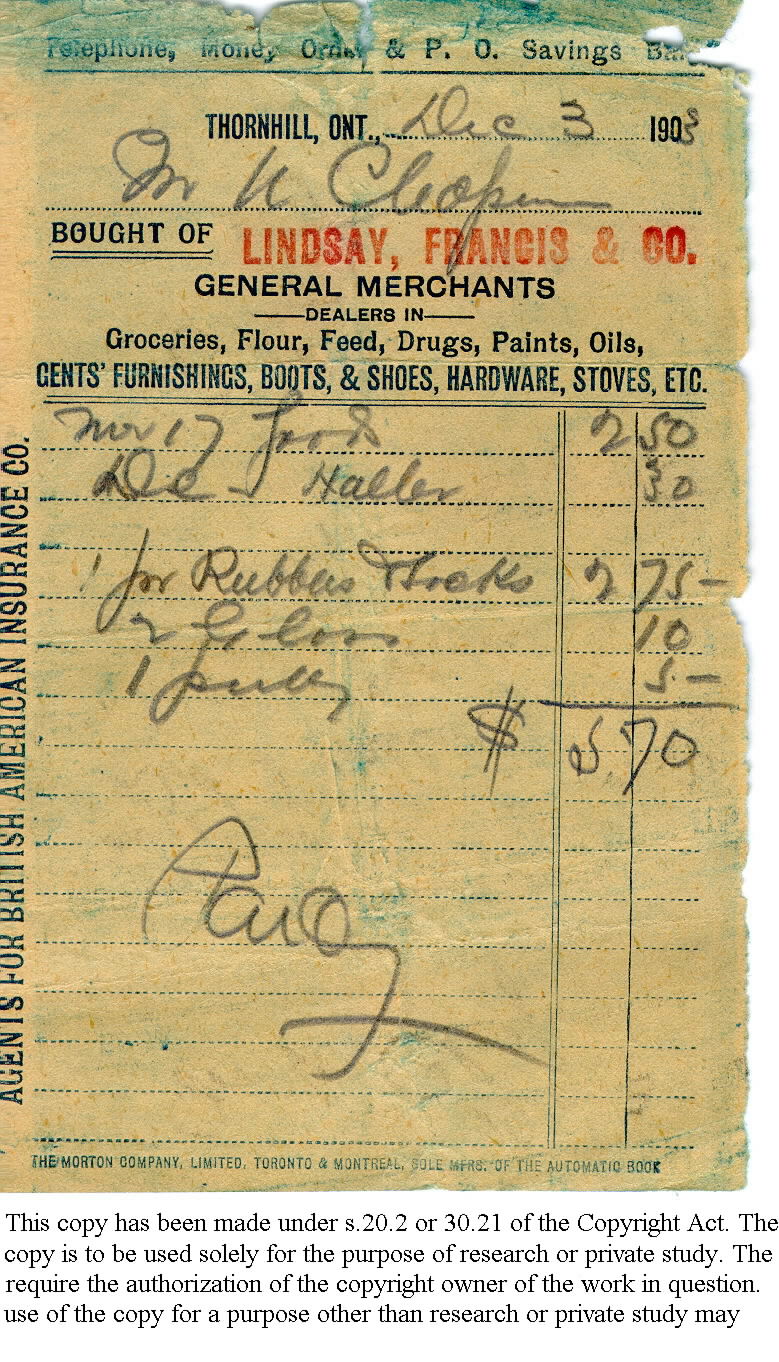 Telephone, Money Order & P. O. Savings Bank
THORNHILL, ONT., Dec 3 1903
Mr N Chapman
BOUGHT OF LINDSAY, FRANCIS & CO.
GENERAL MERCHANTS
DEALERS IN
Groceries, Flour, Feed, Drugs, Paints, Oils,
GENTS' FURNISHINGS, BOOTS, & SHOES, HARDWARE, STOVES, ETC.
Nov 17 2 50
Dec Halter 30
1 pr Rubbers & Socks 2 75 –
2 10
1 5 –
$ 5 70
AGENTS FOR BRITISH AMERICAN INSURANCE CO.
THE MORTON COMPANY, LIMITED, TORONTO & MONTREAL, SOLE MFRS. OF THE AUTOMATIC BOOK
This copy has been made under s.20.2 or 30.21 of the Copyright Act. The
copy is to be used solely for the purpose of research or private study. The
require the authorization of the copyright owner of the work in question.
use of the copy for a purpose other than research or private study may